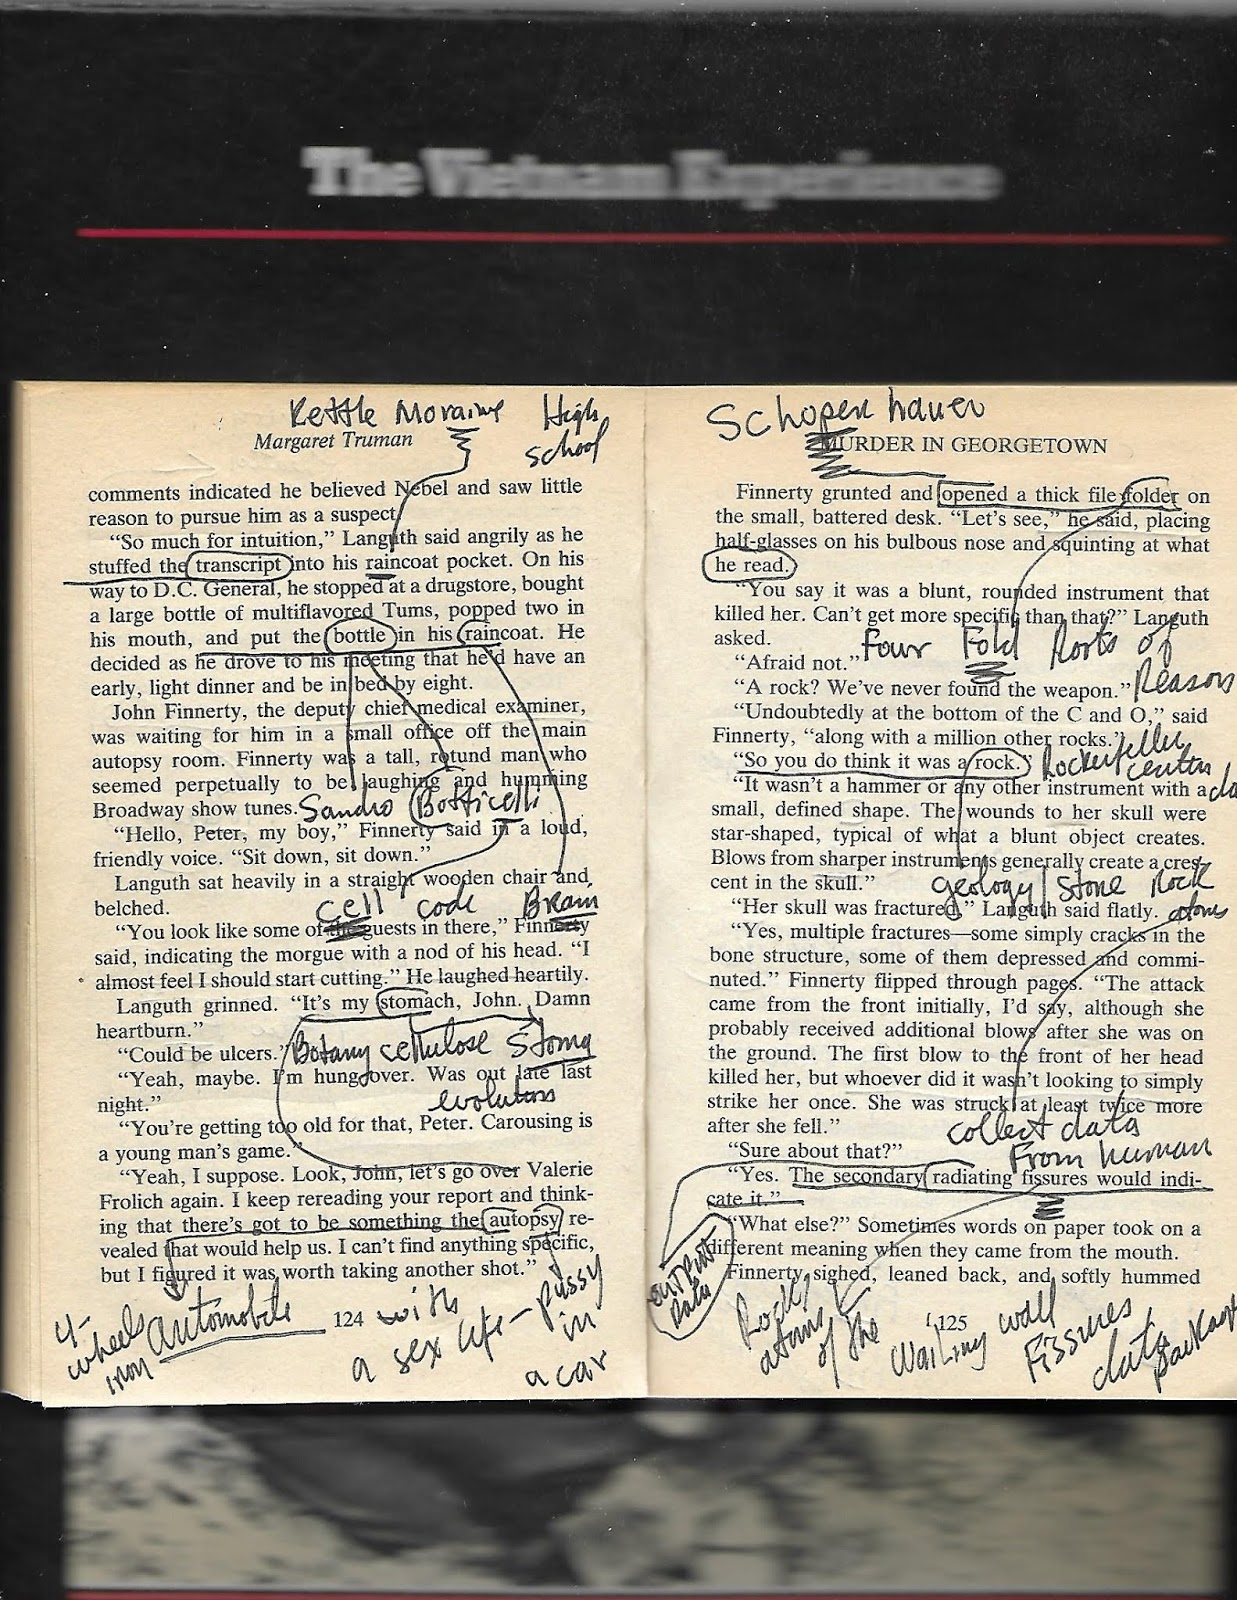 The Vietnam Experience
Kettle Moraine High
School
Margaret Truman
comments indicated he believed Nebel and saw little
reason to pursue him as a suspect.
“So much for intuition,” Languth said angrily as he
stuffed the transcript into his raincoat pocket. On his
way to D.C. General, he stopped at a drugstore, bought
a large bottle of multiflavored Tums, popped two in
his mouth, and put the bottle in his raincoat. He
decided as he drove to his meeting that he'd have an
early, light dinner and be in bed by eight.
John Finnerty, the deputy chief medical examiner,
was waiting for him in a small office off the main
autopsy room. Finnerty was a tall, rotund man who
seemed perpetually to be laughing and humming
Broadway show tunes.
Sandro Botticelli
“Hello, Peter, my boy,” Finnerty said in a loud,
friendly voice. “Sit down, sit down.”
Languth sat heavily in a straight wooden chair and
belched.
cell code Brain
“You look like some of the guests in there,” Finnerty
said, indicating the morgue with a nod of his head. “I
almost feel I should start cutting.” He laughed heartily.
Languth grinned. “It's my stomach, John. Damn
heartburn.”
“Could be ulcers.”
Botany cellulose Stoma
“Yeah, maybe. I'm hung over. Was out late last
night.”
evolution
“You're getting too old for that, Peter. Carousing is
a young man's game.”
“Yeah, I suppose. Look, John, let's go over Valerie
Frolich again. I keep rereading your report and think-
ing that there's got to be something the autopsy re-
vealed that would help us. I can't find anything specific,
but I figured it was worth taking another shot.”
4-
wheels
iron
Automobile
124
with
a sex life - pussy
in
a car
Schopenhauer
MURDER IN GEORGETOWN
Finnerty grunted and opened a thick file folder on
the small, battered desk. “Let's see,” he said, placing
half-glasses on his bulbous nose and squinting at what
he read.
“You say it was a blunt, rounded instrument that
killed her. Can't get more specific than that?” Languth
asked.
Four Fold Roots of
Reason
“Afraid not.”
“A rock? We've never found the weapon.”
“Undoubtedly at the bottom of the C and O,” said
Finnerty, “along with a million other rocks.”
“So you do think it was a rock.”
Rockefeller
“It wasn't a hammer or any other instrument with a
small, defined shape. The wounds to her skull were
star-shaped, typical of what a blunt object creates.
Blows from sharper instruments generally create a cres-
cent in the skull.”
geology stone Rock
atoms
“Her skull was fractured,” Languth said flatly.
“Yes, multiple fractures—some simply cracks in the
bone structure, some of them depressed and commi-
nuted.” Finnerty flipped through pages. “The attack
came from the front initially, I'd say, although she
probably received additional blows after she was on
the ground. The first blow to the front of her head
killed her, but whoever did it wasn't looking to simply
strike her once. She was struck at least twice more
after she fell.”
collect data
From human
“Sure about that?”
“Yes. The secondary radiating fissures would indi-
cate it.”
“What else?” Sometimes words on paper took on a
different meaning when they came from the mouth.
Finnerty sighed, leaned back, and softly hummed
data
125
Rocks
atoms
of the
Wailing wall
Fissures
data